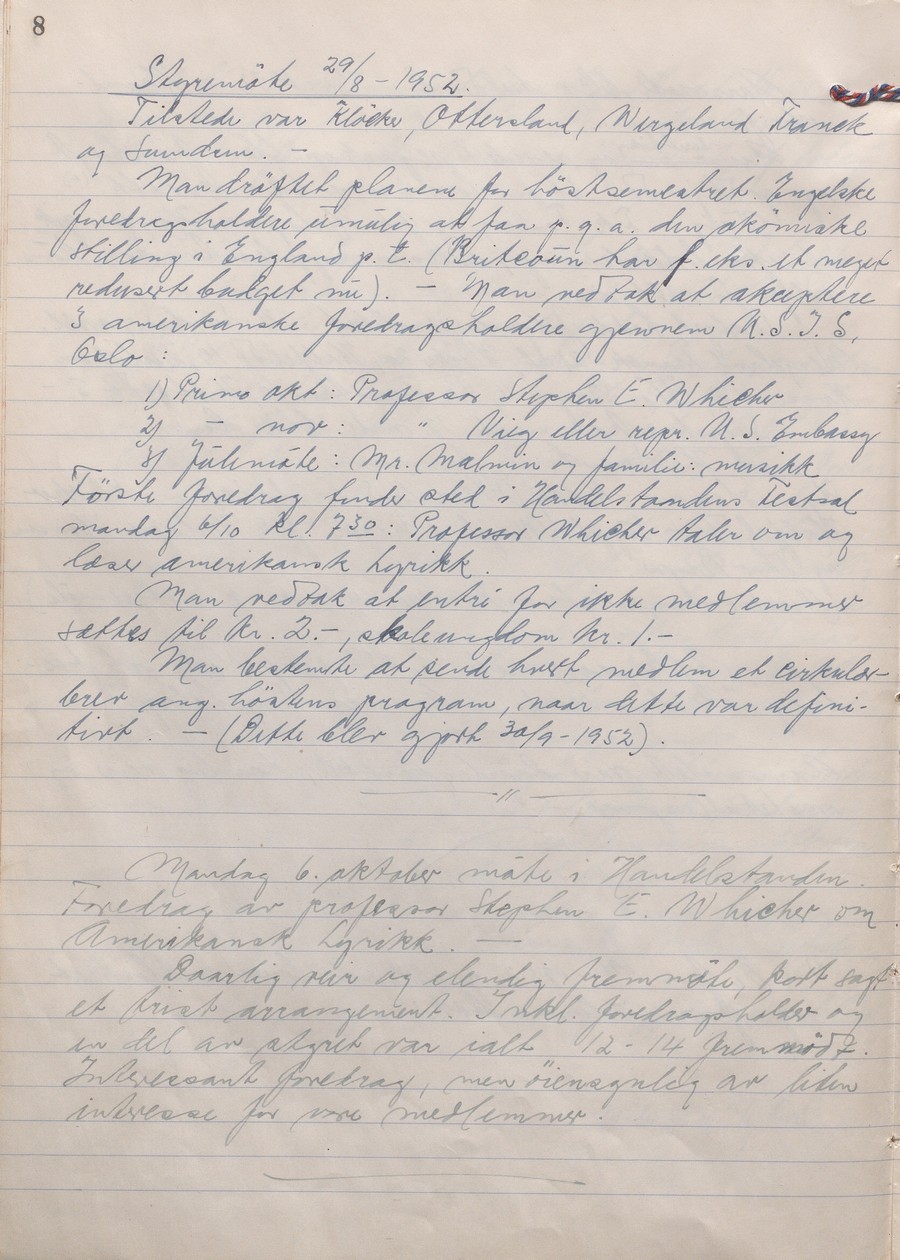 8
Styremöte 29/8 - 1952.
Tilstede var Klöcker, Ottersland, Wergeland Franck
og Sumdem. -
Man dröftet planene for höstsemestret. Engelske
foredragsholdere umulig at faa p.g.a. den ökomiske
stilling i England p.t. (Britcoun har f.eks. et meget
redusert budget nu). - Man vedtok at akceptere
3 amerikanske foredragsholdere gjennem U.S.I.S,
Oslo :
1) Primo okt : Professor Stephen E. Whicher
2) - nov : " Vieg eller repr. U.S. Embassy
3) Julemöte : Mr. Malmin og familie : musikk
Förste foredrag finder sted i Handelstandens Festsal
mandag 6/10 kl. 7 30 : Professor Whicher taler om og
læser amerikansk Lyrikk.
Man vedtok at entré for ikke medlemmer
sættes til kr. 2.-, skoleungdom kr. 1.-
Man bestemte at sende hvert medlem et cirkulær-
brev ang. höstens program, naar dette var defini-
tivt. - (Dette blev gjort 30/9 - 1952).
- " -
Mandag 6. oktober möte i Handelstanden.
Foredrag av professor Stephen E. Whicher om
Amerikansk Lyrikk. -
Daarlig veir og elendig fremmöte, kort sagt
et trist arrangement. Inkl. foredragsholder og
en del av styret var ialt 12 - 14 fremmödt.
Interessant foredrag, men öiensynlig av liten
interesse for vore medlemmer.